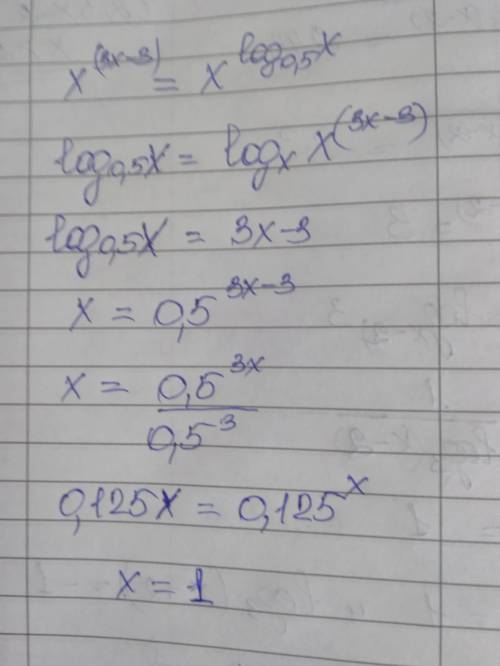 x^(3x-3) = x^log_0,5 x
log_0,5 x = log_x x^(3x-3)
log_0,5 x = 3x-3
x = 0,5^3x-3
x = 0,5^3x / 0,5^3
0,125x = 0,125^x
x = 1